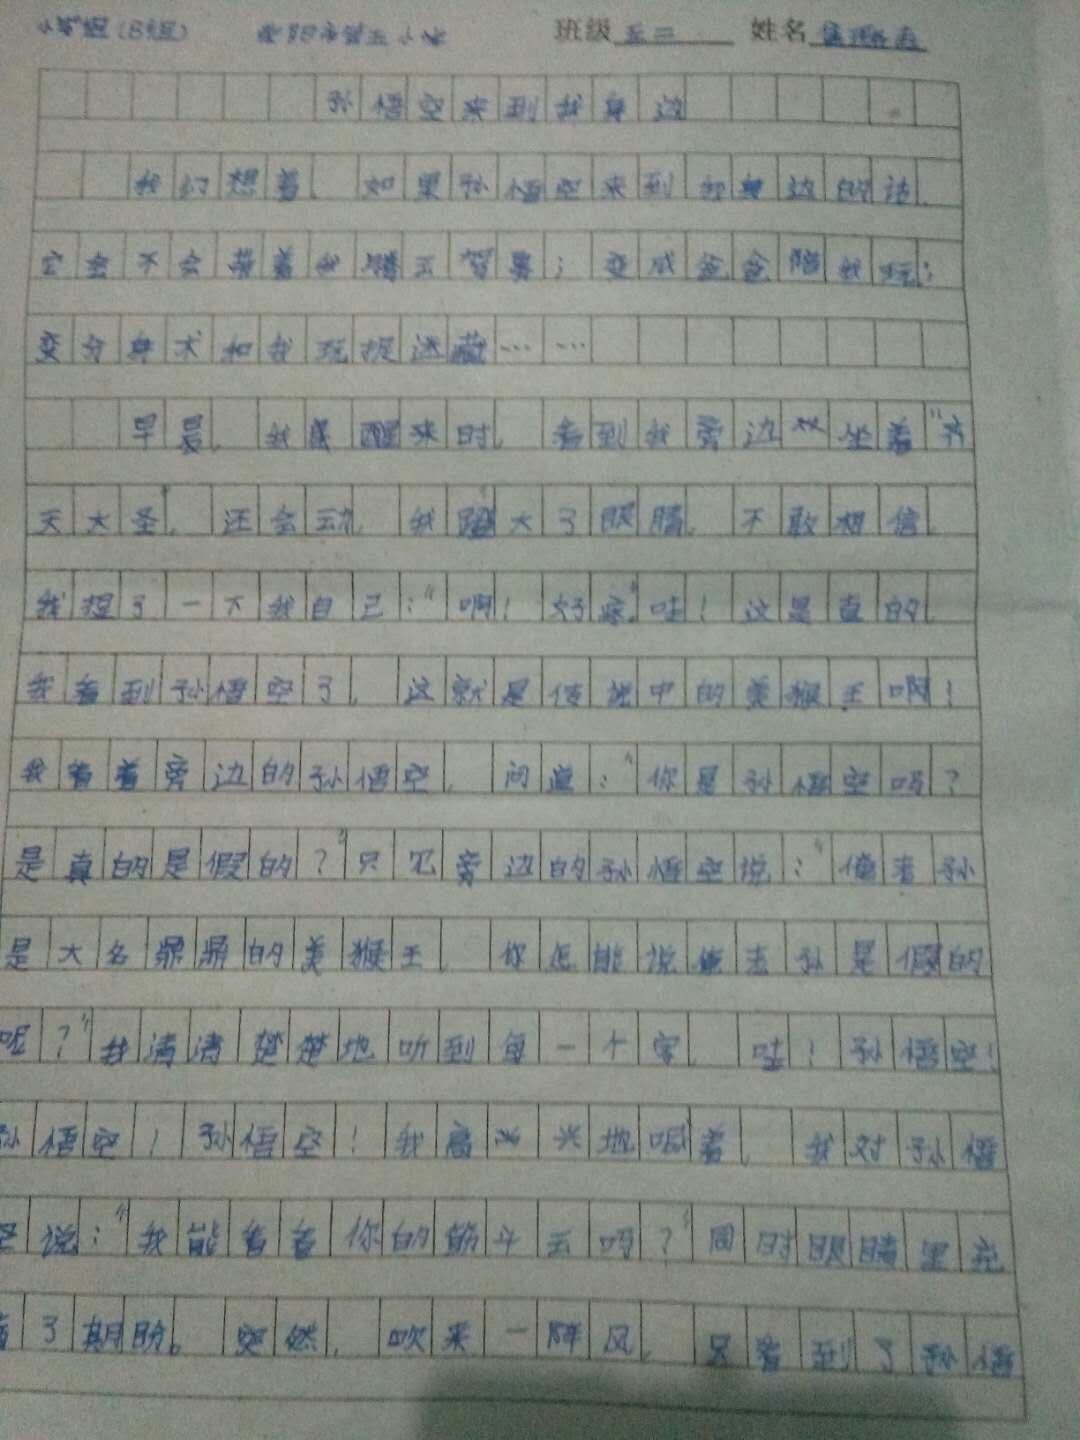 小学组（B组） 市第五小学 班级 五二 姓名
孙悟空来到我身边
我幻想着，如果孙悟空来到我身边的话，
它会不会带着我腾云驾雾；变成爸爸陪我玩；
变分身术和我玩捉迷藏……
早晨，我醒来时，看到我旁边坐着“齐
天大圣，还会动，我蹬大了眼睛，不敢相信，
我捏了一下我自己：“啊！好疼”哇！这是真的，
我看到孙悟空了，这就是传说中的美猴王啊！
我看着旁边的孙悟空，问道：“你是孙悟空吗？
是真的是假的？”只见旁边的孙悟空说：“俺老孙
是大名鼎鼎的美猴王，你怎能说俺老孙是假的
呢？”我清清楚楚地听到每一个字，哇！孙悟空！
孙悟空！孙悟空！我高兴地喊着，我对孙悟
空说：“我能看看你的筋斗云吗？”同时眼睛里充
满了期盼。突然，吹来一阵风，只看到了孙悟